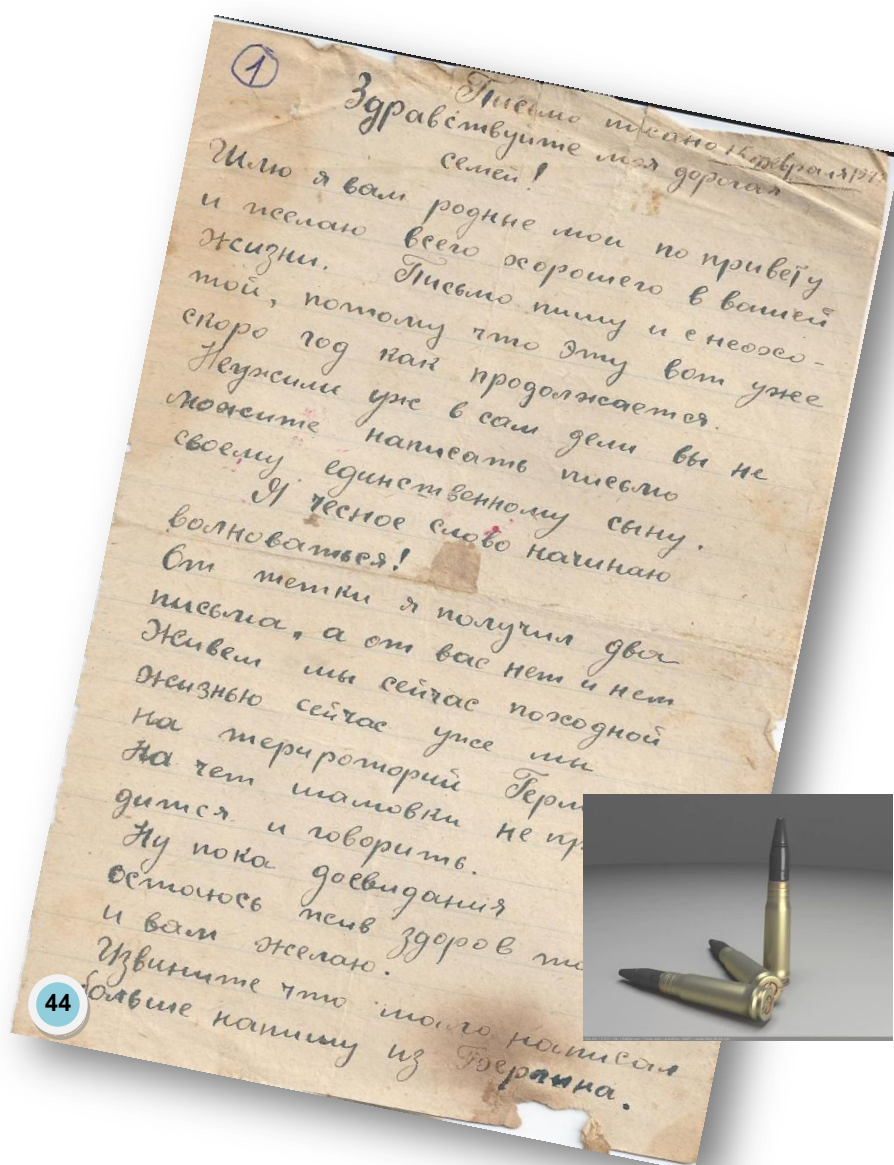 1
Письмо писано 15 февраля 194
Здравствуйте моя дорогая
семей!
Шлю я вам родные мои по привету
и желаю всего хорошего в вашей
жизни. Письмо пишу и с неохо-
той, потому что эту вот уже
скоро год как продолжается.
Неужили уж в сам дели вы не
можите написать письмо
своему единственному сыну.
Я чесное слово начинаю
волноваться!
От тетки я получил два
письма, а от вас нет и нет
Живем мы сейчас походной
жизнью сейчас уже мы
на терироторий Герм
На чет шамовки не пр
дится и говорить.
Ну пока досвидания
остаюсь жив здоров то
и вам желаю.
Извините что мало написал
больше напишу из Берлина.
44